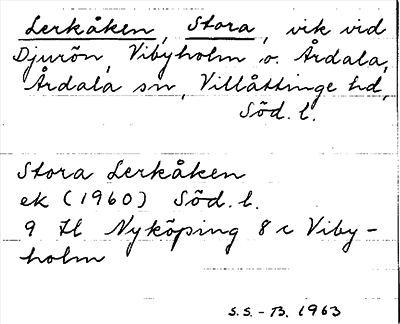 Lerkåken, Stora, vik vid
Djurön, Vibyholm o. Årdala,
Årdala sn, Villåttinge hd,
Söd. l.
Stora Lerkåken
ek (1960) Söd. l.
9 H Nyköping 8 c Viby-
holm
S.S. - B. 1963